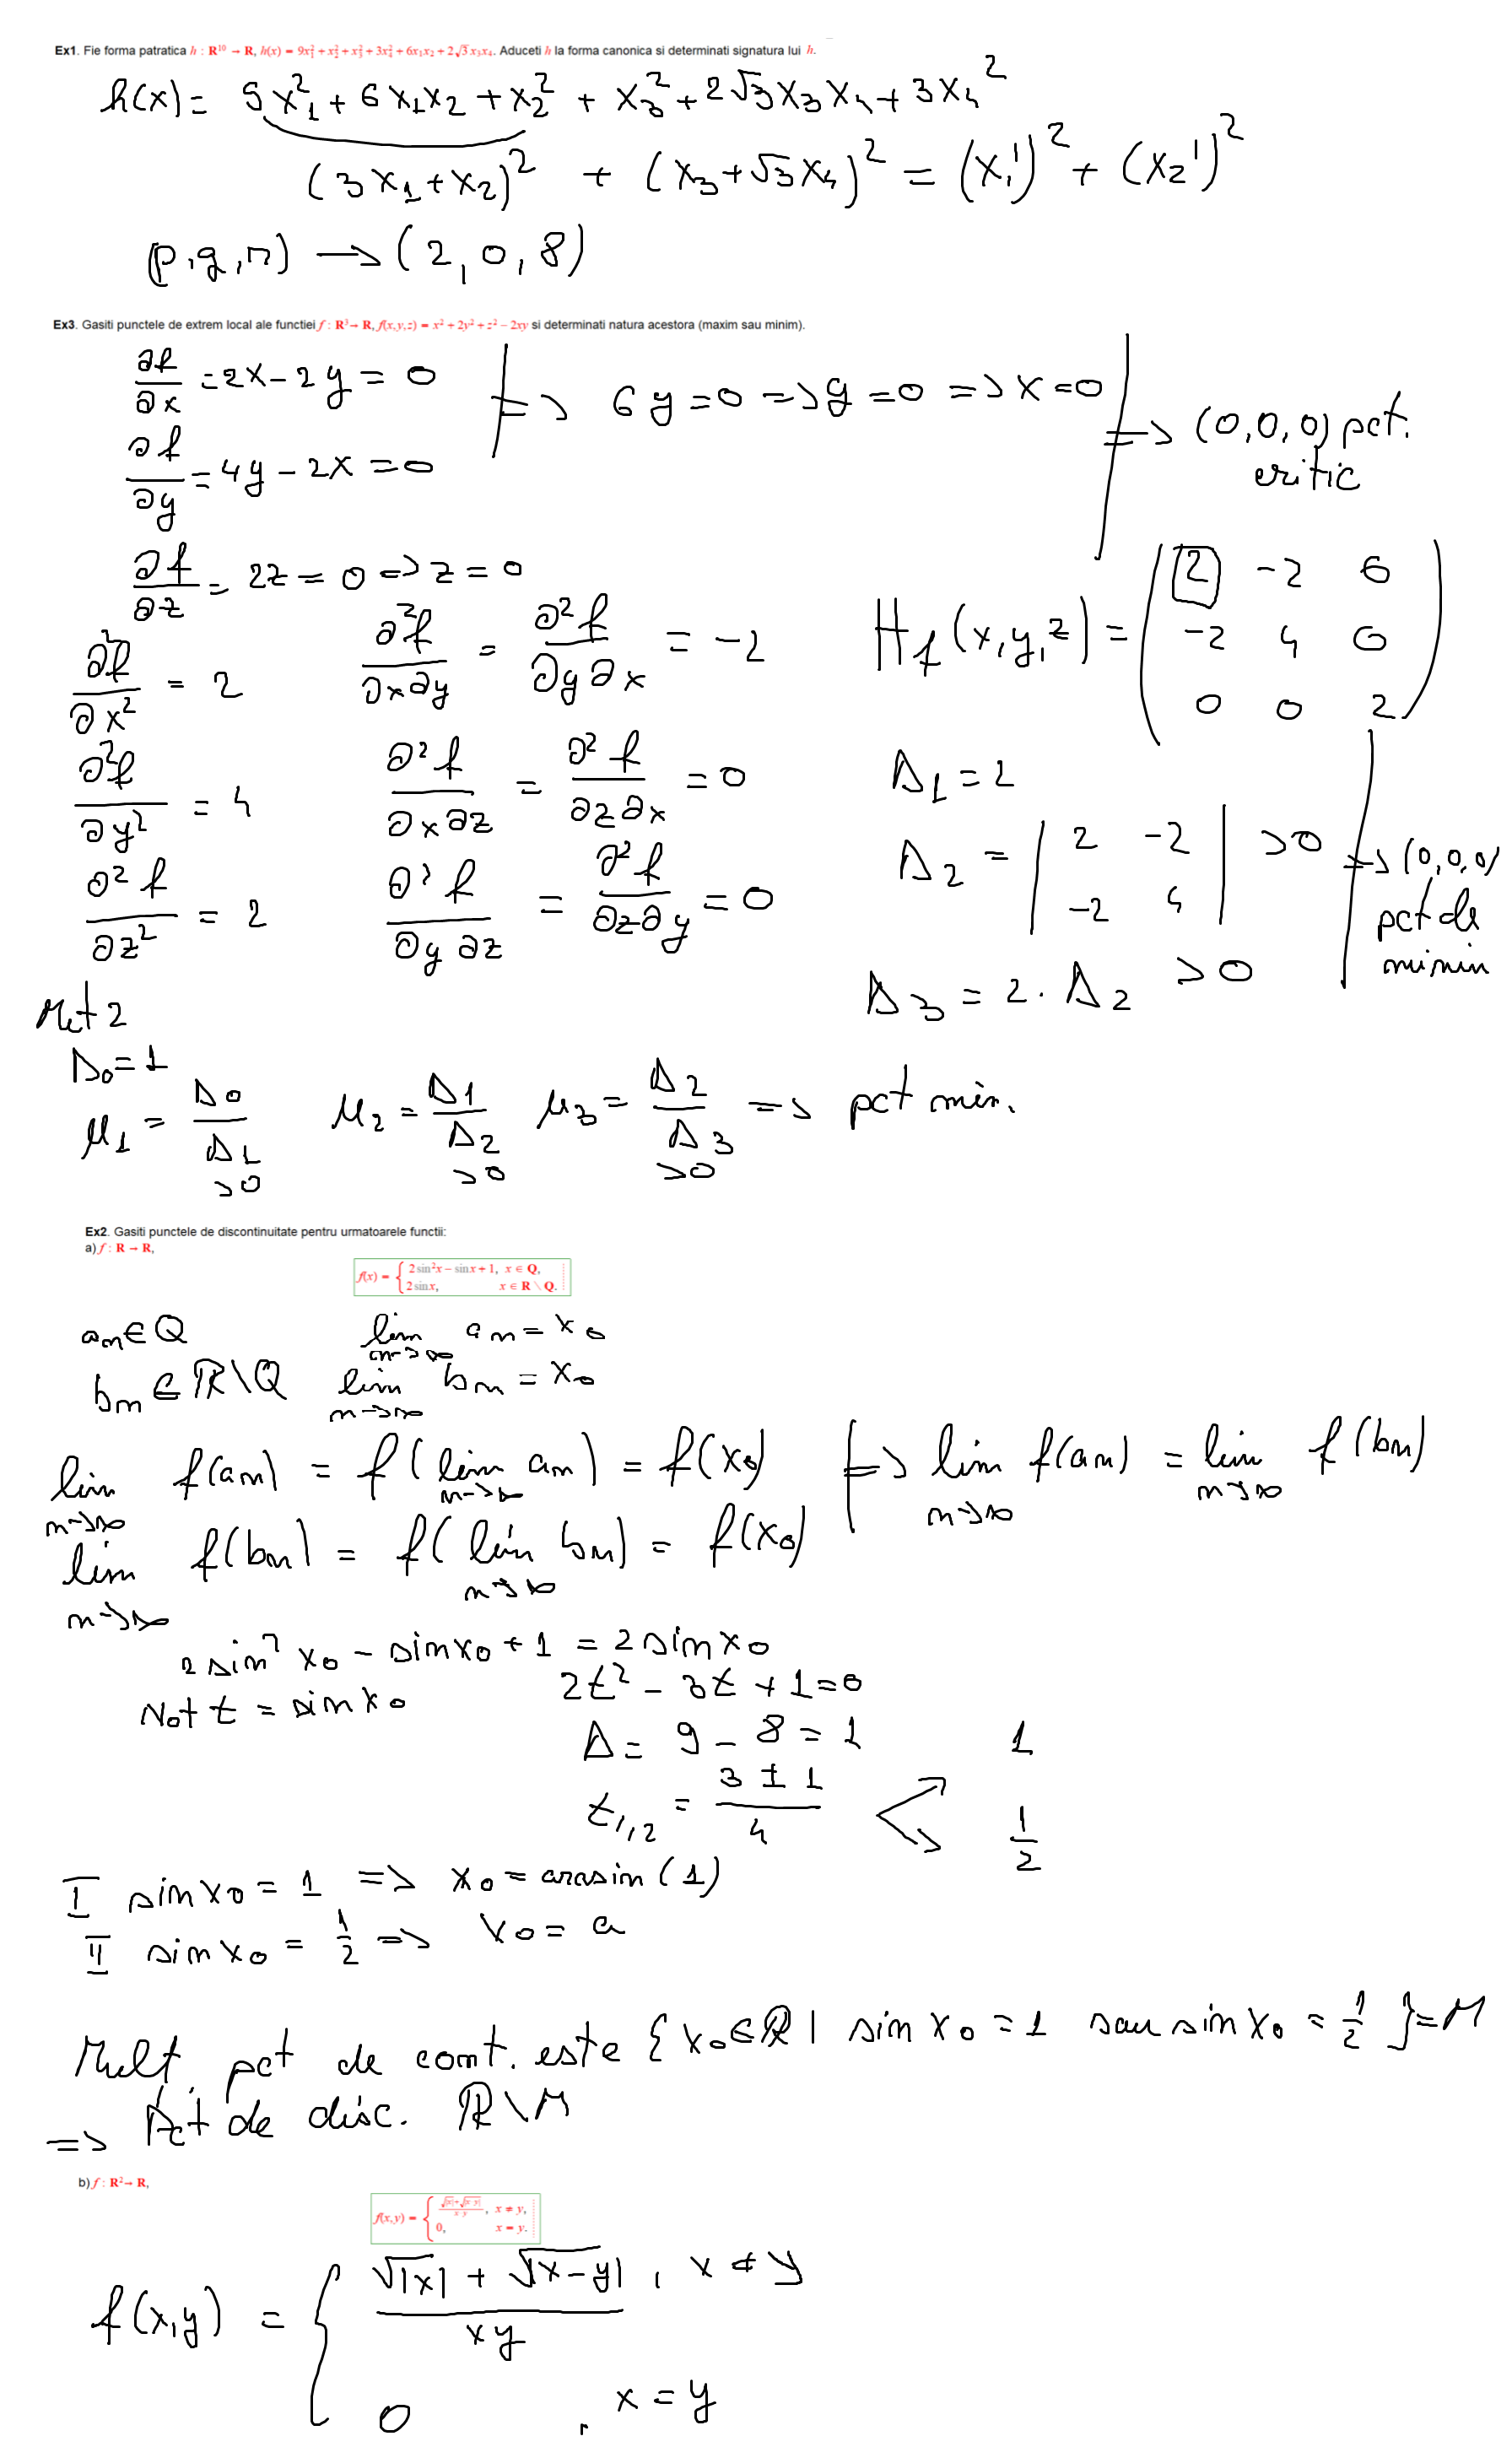 Ex1. Fie forma patratica h : R¹⁰ → R, h(x) = 9x₁² + x₂² + x₃² + 3x₄² + 6x₁x₂ + 2√3x₃x₄. Aduceti h la forma canonica si determinati signatura lui h.
h(x) = 9x₁² + 6x₁x₂ + x₂² + x₃² + 2√3x₃x₄ + 3x₄²
(3x₁+x₂)² + (x₃+√3x₄)² = (x₁')² + (x₂')²
(p,q,r) → (2,0,8)
Ex3. Gasiti punctele de extrem local ale functiei f : R³ → R, f(x,y,z) = x² + 2y² + z² − 2xy si determinati natura acestora (maxim sau minim).
∂f/∂x = 2x − 2y = 0
∂f/∂y = 4y − 2x = 0
=> 6y = 0 => y = 0 => x = 0
∂f/∂z = 2z = 0 => z = 0
=> (0,0,0) pct. critic
∂²f/∂x² = 2 ∂²f/∂x∂y = ∂²f/∂y∂x = −2
∂²f/∂y² = 4 ∂²f/∂x∂z = ∂²f/∂z∂x = 0
∂²f/∂z² = 2 ∂²f/∂y∂z = ∂²f/∂z∂y = 0
H_f(x,y,z) = ( 2 −2 0
−2 4 0
0 0 2 )
Δ₁ = 2
Δ₂ = | 2 −2 | > 0
| −2 4 |
Δ₃ = 2·Δ₂ > 0
=> (0,0,0) pct de minim
Met 2
Δ₀ = 1
μ₁ = Δ₀/Δ₁ > 0 μ₂ = Δ₁/Δ₂ > 0 μ₃ = Δ₂/Δ₃ > 0 => pct min.
Ex2. Gasiti punctele de discontinuitate pentru urmatoarele functii:
a) f : R → R,
f(x) = { 2 sin²x − sin x + 1, x ∈ Q,
2 sin x, x ∈ R \ Q.
an ∈ Q lim n→∞ an = x₀
bn ∈ ℝ\Q lim n→∞ bn = x₀
lim n→∞ f(an) = f(lim n→∞ an) = f(x₀)
lim n→∞ f(bn) = f(lim n→∞ bn) = f(x₀)
=> lim n→∞ f(an) = lim n→∞ f(bn)
2 sin² x₀ − sin x₀ + 1 = 2 sin x₀
Not t = sin x₀ 2t² − 3t + 1 = 0
Δ = 9 − 8 = 1
t₁,₂ = (3 ± 1)/4 < 1
1/2
I sin x₀ = 1 => x₀ = arcsin(1)
II sin x₀ = 1/2 => x₀ = a
Mult. pct de cont. este { x₀ ∈ ℝ | sin x₀ = 1 sau sin x₀ = 1/2 } = M
=> Pct de disc. ℝ\M
b) f : R² → R,
f(x,y) = { (√|x| + √|x−y|)/xy, x ≠ y,
0, x = y.
f(x,y) = { (√|x| + √|x−y|)/xy , x ≠ y
0 , x = y